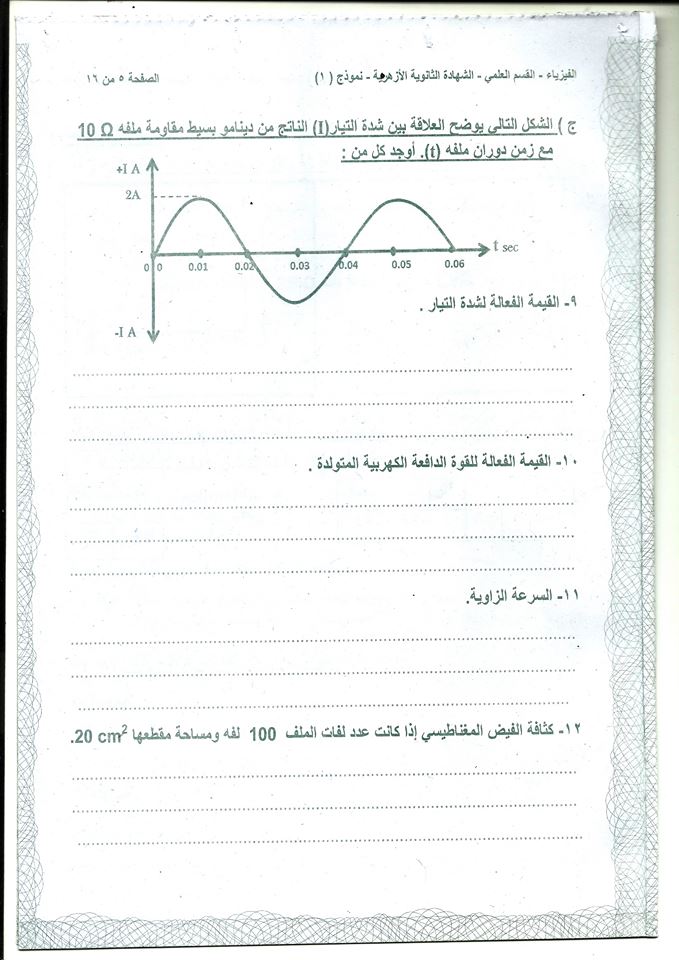 الفيزياء - القسم العلمي - الشهادة الثانوية الأزهرية - نموذج ( ١ ) الصفحة ٥ من ١٦
ج ) الشكل التالي يوضح العلاقة بين شدة التيار(I) الناتج من دينامو بسيط مقاومة ملفه 10 Ω
مع زمن دوران ملفه (t). أوجد كل من :
+I A
2A
t sec
0 0 0.01 0.02 0.03 0.04 0.05 0.06
-I A
٩- القيمة الفعالة لشدة التيار .
١٠- القيمة الفعالة للقوة الدافعة الكهربية المتولدة .
١١- السرعة الزاوية.
١٢- كثافة الفيض المغناطيسي إذا كانت عدد لفات الملف 100 لفه ومساحة مقطعها 20 cm².